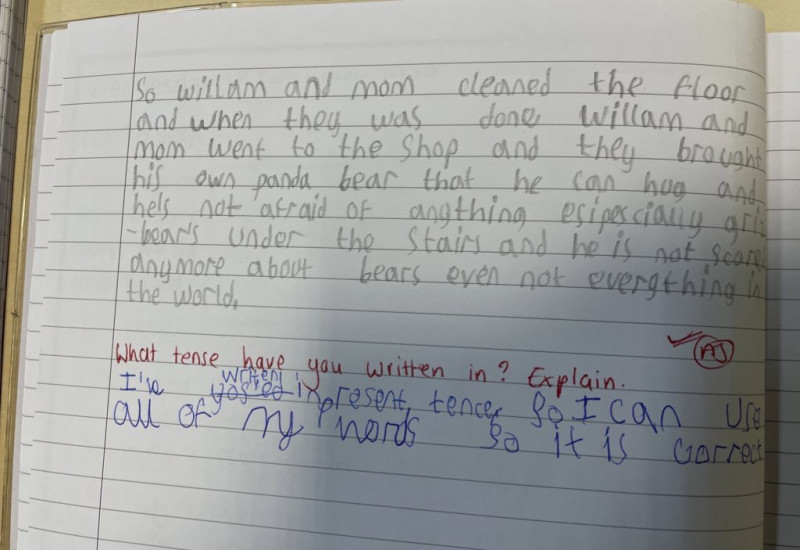 So willam and mom cleaned the floor
and when they was done willam and
mom went to the shop and they brought
his own panda bear that he can hug and
he's not afraid of angthing esipescially grli
-bears under the stairs and he is not scare
anymore about bears even not evergthing in
the world.
What tense have you written in? Explain.
written
I've in present tence, So I can use
all of my words so it is correct